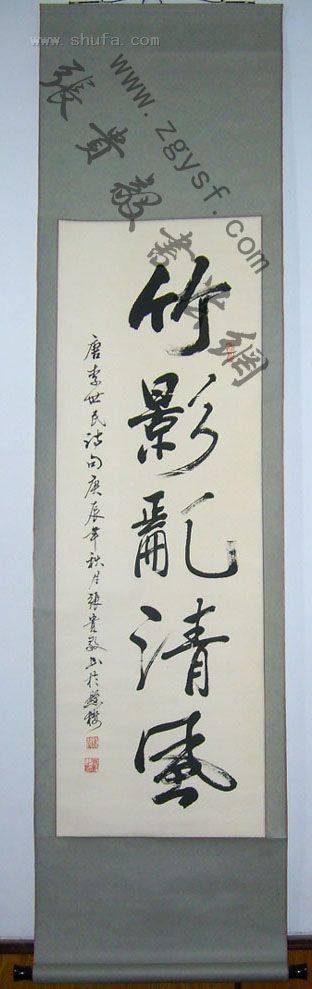 www.shufa.com
www.zgysf.com
張貴敬書法網
竹影亂清風
唐李世民詩句庚辰年秋月張貴敬書於